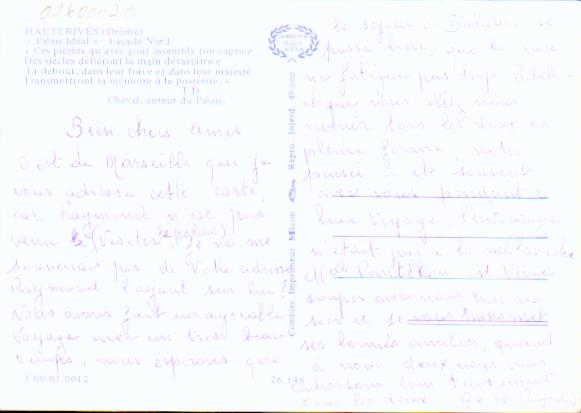 02600020
HAUTERIVES (Drôme)
« Palais Idéal » - Façade Nord
« Ces pierres qu'avec goût assembla ton caprice
Des siècles défieront la main dévastatrice
Et debout, dans leur force et dans leur majesté
Transmettront ta mémoire à la postérité. »
T.D.
Cheval, auteur du Palais.
Bien chers amis
c'est de Marseille que je
vous adresse cette carte,
car Raymond n'est pas
venu (Visiter le palais) je ne me
souvenais pas de votre adresse
Raymond l'ayant sur lui
nous avons fait un agréable
voyage avec un très beau
temps, nous espérons que
3.00.01.0012
Combier Imprimeur Mâcon
Repro. Interd. 49-000
26.148
le séjour à se
passe bien, que la cure
ne fatigue pas trop
et que vous allez nous
revenir tous les deux en
pleine forme, notre
pensée a été souvent
avec vous pendant ce
beau voyage l'entourage
n'était pas à la mélancolie
est venue
souper avec nous hier au
soir et je vous transmet
ses bonnes amitiés, quand
à nous deux nous vous
embrassons bien tendrement
tous les deux